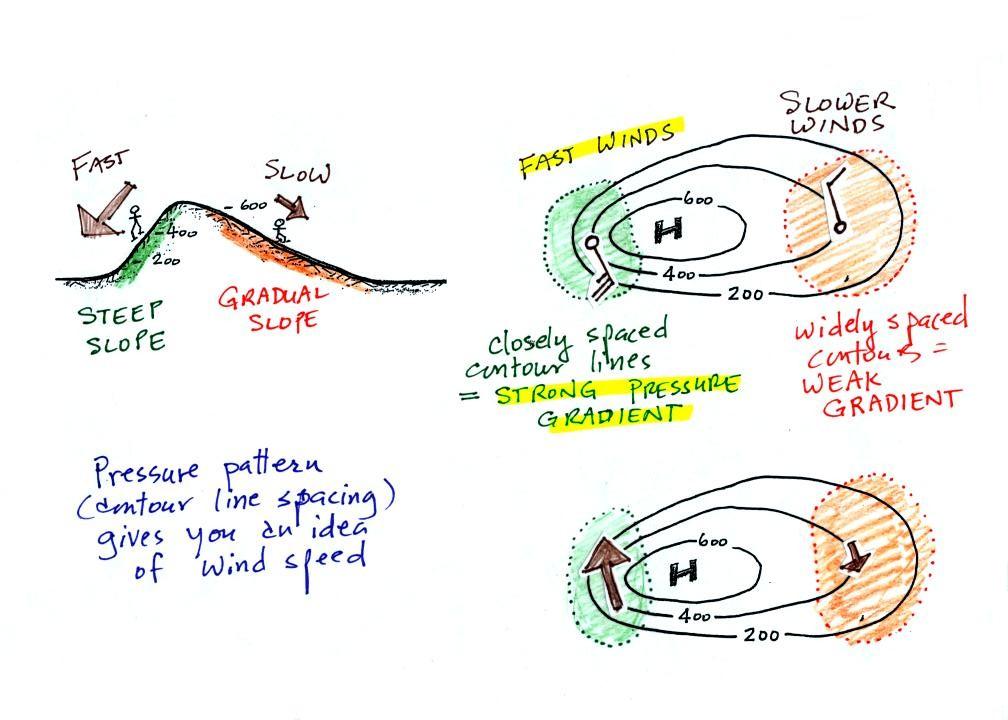 FAST
SLOW
600
400
200
STEEP
SLOPE
GRADUAL
SLOPE
FAST WINDS
SLOWER
WINDS
600
H
400
200
closely spaced
contour lines
= STRONG PRESSURE
GRADIENT
widely spaced
contours =
WEAK
GRADIENT
Pressure pattern
(contour line spacing)
gives you an idea
of wind speed
600
H
400
200